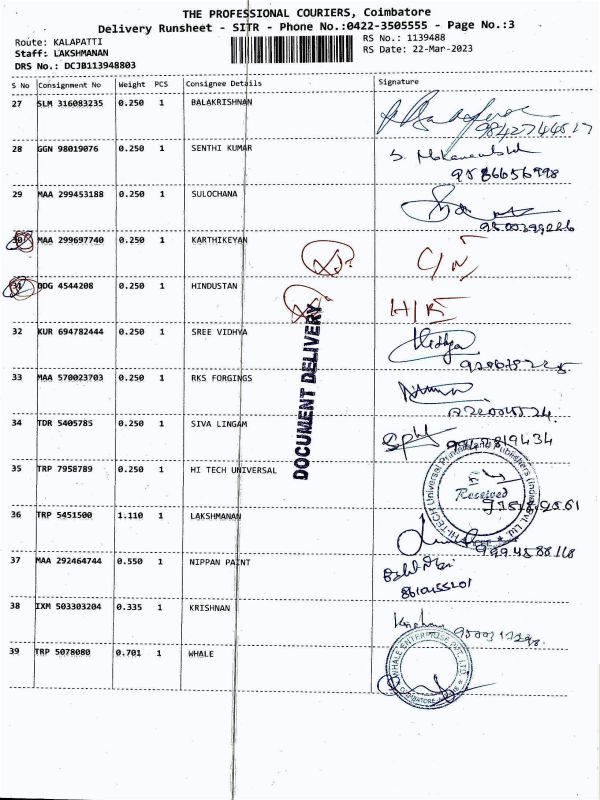 THE PROFESSIONAL COURIERS, Coimbatore
Delivery Runsheet - SITR - Phone No.:0422-3505555 - Page No.:3
Route: KALAPATTI
RS No.: 1139488
Staff: LAKSHMANAN
RS Date: 22-Mar-2023
DRS No.: DCJB113948803
S No Consignment No Weight PCS Consignee Details Signature
27 SLM 316083235 0.250 1 BALAKRISHNAN
9842744517
28 GGN 98019076 0.250 1 SENTHI KUMAR
9586656998
29 MAA 299453188 0.250 1 SULOCHANA
30 MAA 299697740 0.250 1 KARTHIKEYAN
31 DDG 4544208 0.250 1 HINDUSTAN
32 KUR 694782444 0.250 1 SREE VIDHYA Vidhya
33 MAA 570023703 0.250 1 RKS FORGINGS
34 TDR 5405785 0.250 1 SIVA LINGAM
35 TRP 7958789 0.250 1 HI TECH UNIVERSAL Received
36 TRP 5451500 1.110 1 LAKSHMANAN
37 MAA 292464744 0.550 1 NIPPAN PAINT
8610155201
38 IXM 503303204 0.335 1 KRISHNAN
39 TRP 5078080 0.701 1 WHALE
WHALE ENTERPRISE PVT. LTD.
DOCUMENT DELIVERY